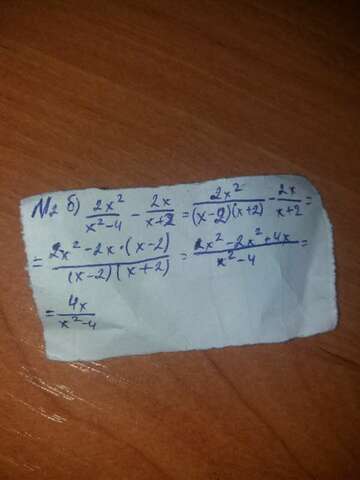 №2 б) 2x²/(x²-4) - 2x/(x+2) = 2x²/((x-2)(x+2)) - 2x/(x+2) =
= (2x²-2x·(x-2))/((x-2)(x+2)) = (2x²-2x²+4x)/(x²-4) =
= 4x/(x²-4)